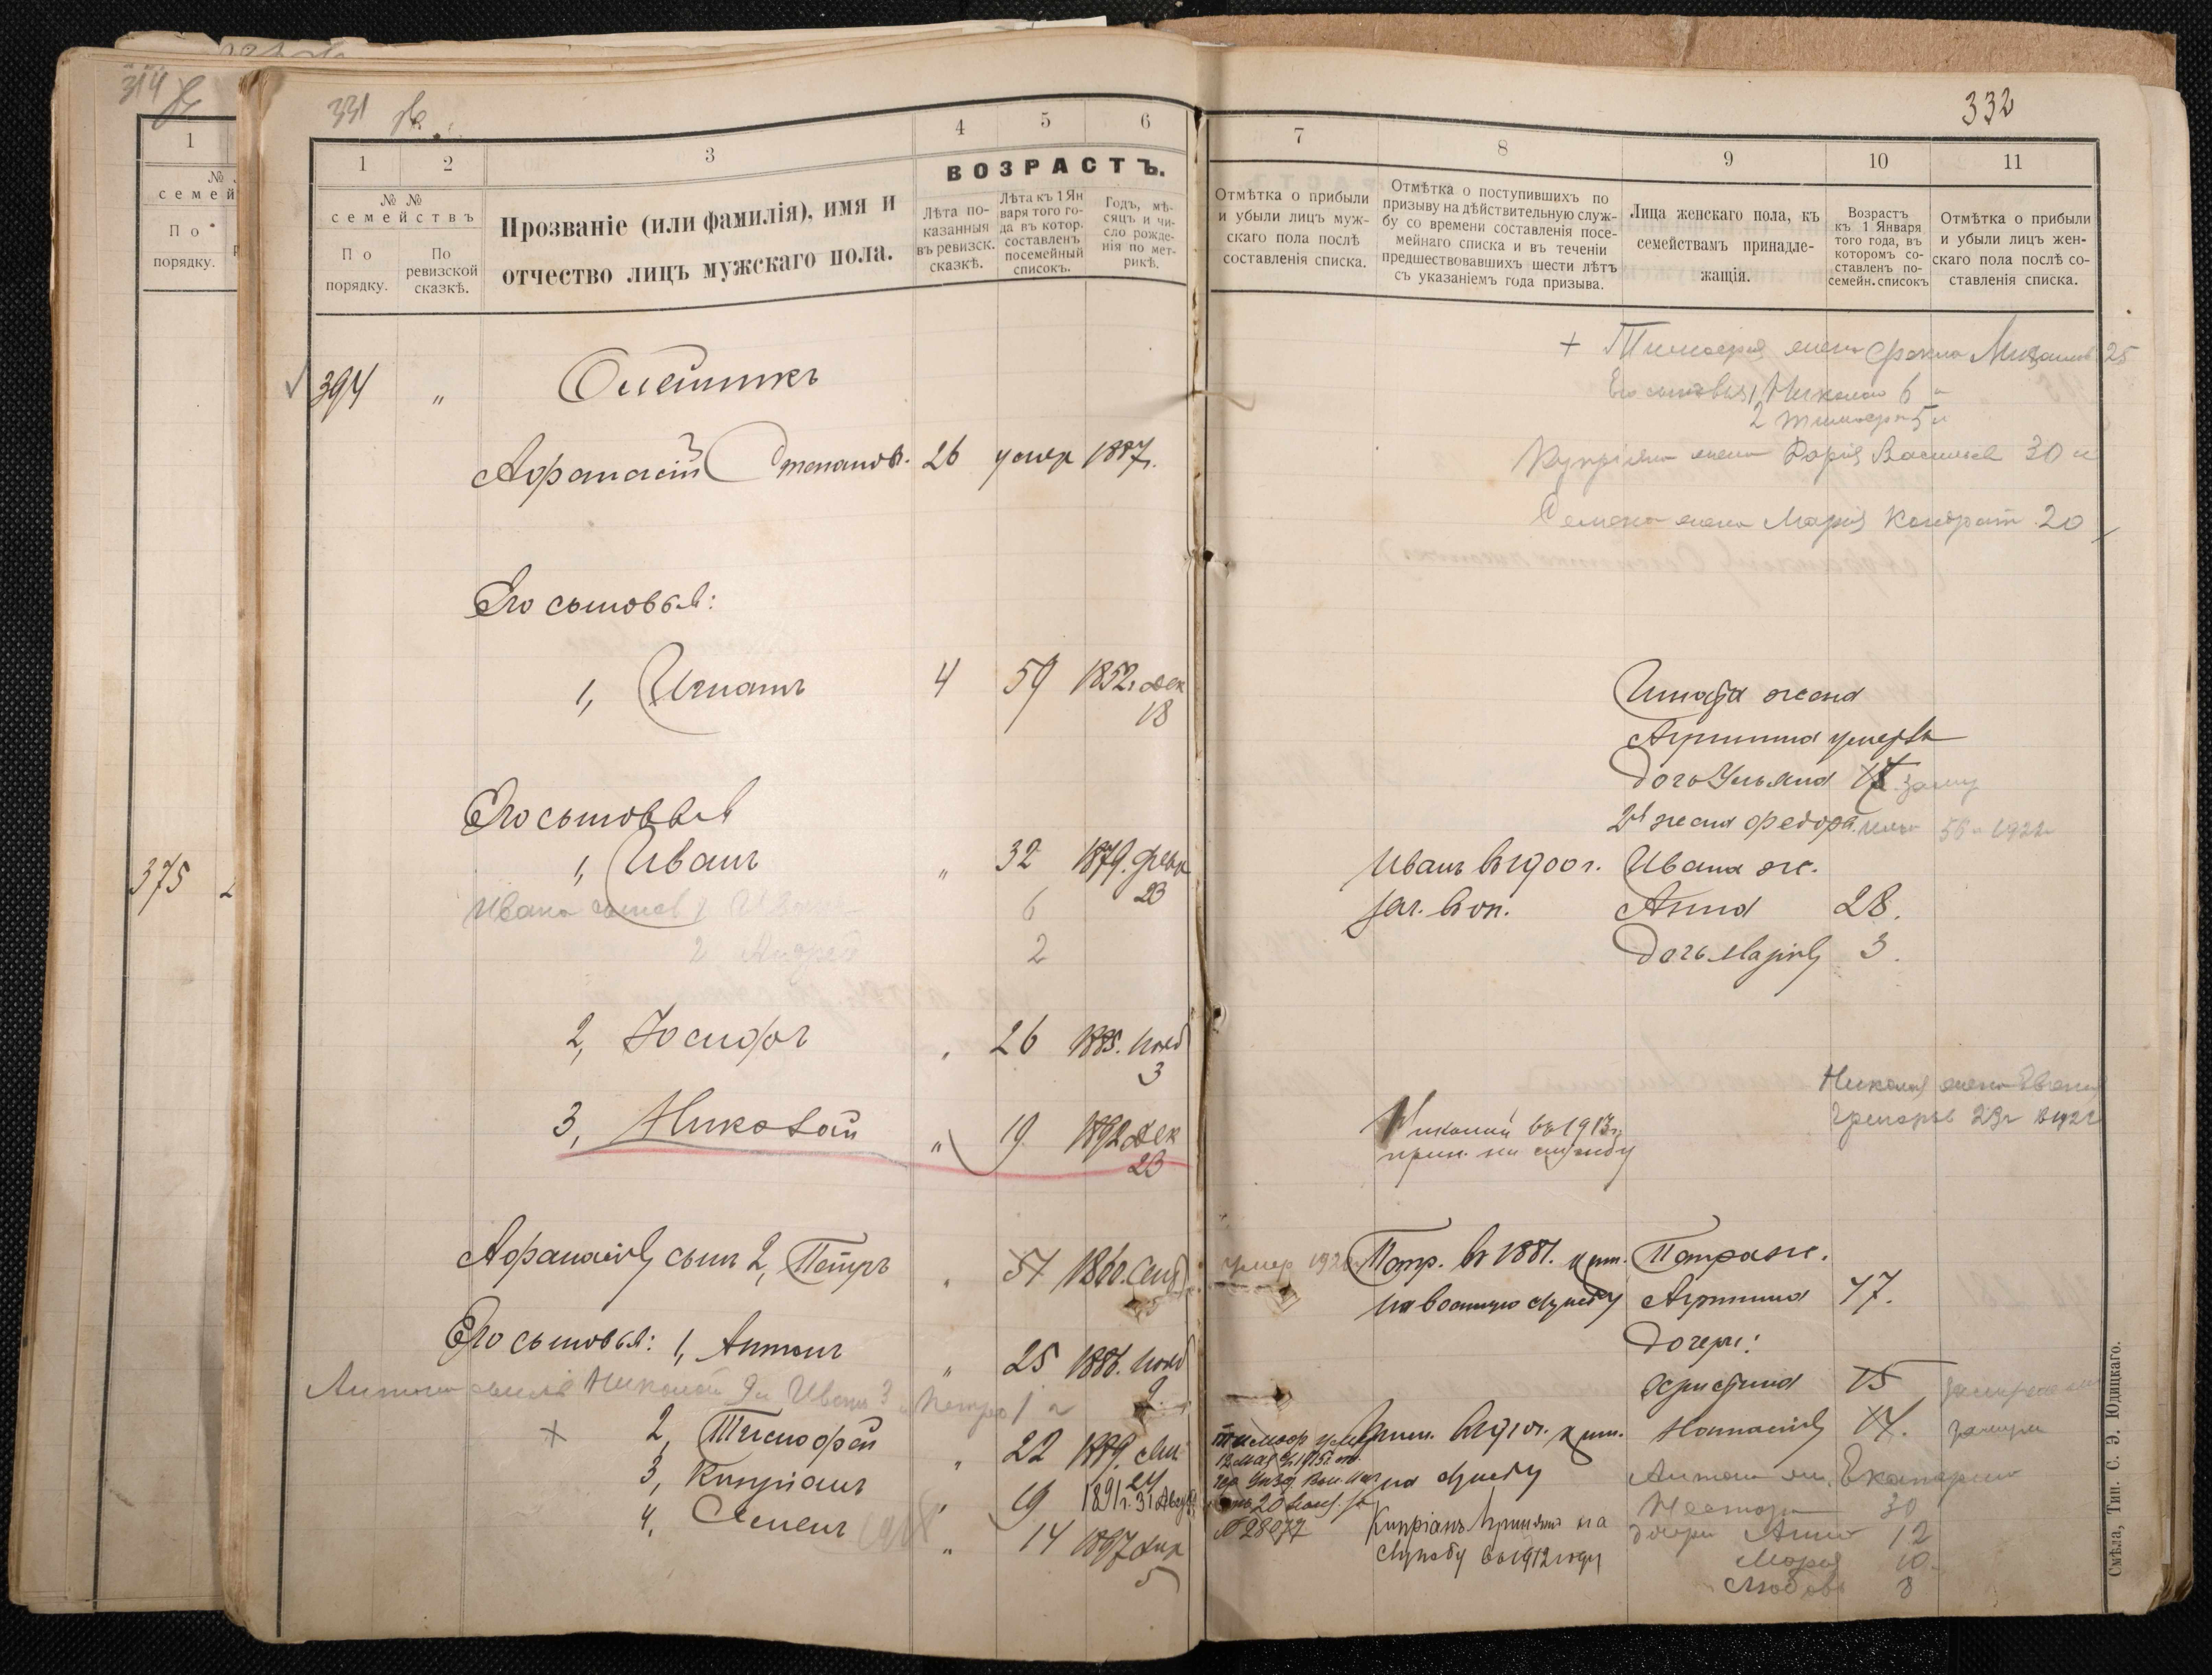 314
331
332
1
2
3
4
5
6
7
8
9
10
11
№ №
семействъ
По
порядку.
По
ревизской
сказкѣ.
Прозваніе (или фамилія), имя и
отчество лицъ мужскаго пола.
ВОЗРАСТЪ.
Лѣта по-
казанныя
въ ревизск.
сказкѣ.
Лѣта къ 1 Ян
варя того го-
да въ котор.
составленъ
посемейный
списокъ.
Годъ, мѣ-
сяцъ и чи-
сло рожде-
нія по мет-
рикѣ.
Отмѣтка о прибыли
и убыли лицъ муж-
скаго пола послѣ
составленія списка.
Отмѣтка о поступившихъ по
призыву на дѣйствительную служ-
бу со времени составленія посе-
мейнаго списка и въ теченіи
предшествовавшихъ шести лѣтъ
съ указаніемъ года призыва.
Лица женскаго пола, къ
семействамъ принадле-
жащія.
Возрастъ
къ 1 Января
того года, въ
которомъ со-
ставленъ по-
семейн. списокъ
Отмѣтка о прибыли
и убыли лицъ жен-
скаго пола послѣ со-
ставленія списка.
394 " Олейникъ
Афанасій Степановъ. 26 умер 1887г.
+ Тимофея жена Фекла 25
Его сыновья 1 Николай 6
2 Тимофей 5
Купріяна жена Дарія Васильев 30
Семена жена Марія Кондрат 20
Его сыновья:
1, Игнатъ 4 59 1852г. дек
18
Игната жена
Агрипина умерла
дочь Ульяна 17 замуж
2я жена Федора 56 1922
Его сыновья
1, Иванъ " 32 1879. февр
23
Иванъ въ 1900 г. Ивана ж.
зач. в оп. Анна 28.
дочь Марія 3.
Ивана 1 Иван 6
2 Андрей 2
2, Іосифъ " 26 1885. нояб
3
3, Николай " 19 1892 дек
23
Николай въ 1913 г.
прин. на службу
Николая жена Евгенія
Григорьев 23
Афанасія сынъ 2, Петръ " 51 1860. Сент
умер 192
Петр. въ 1881. прин. Петра ж.
на военную службу Агрипина 47.
дочери:
Его сыновья: 1, Антонъ " 25 1886. нояб
9
Христина 15
Антона Николай 9 Иван 3 Петро 1
2, Тимофей " 22 1889.
24
Тимоф умер
12 мая 1915 г.
20
№ 28077
прин. на службу
Анастасія 14. замуж
3, Кипріанъ " 19 1891 г. 31 Август
Кипріанъ принятъ на
службу въ 1912 году
Антона ж. Екатерина
Нестор 30
4, Семенъ " 14 1897
5
дочери Анна 12
Марія 10
Любовь 8
375
Смѣла, Тип. С. Э. Юдицкаго.